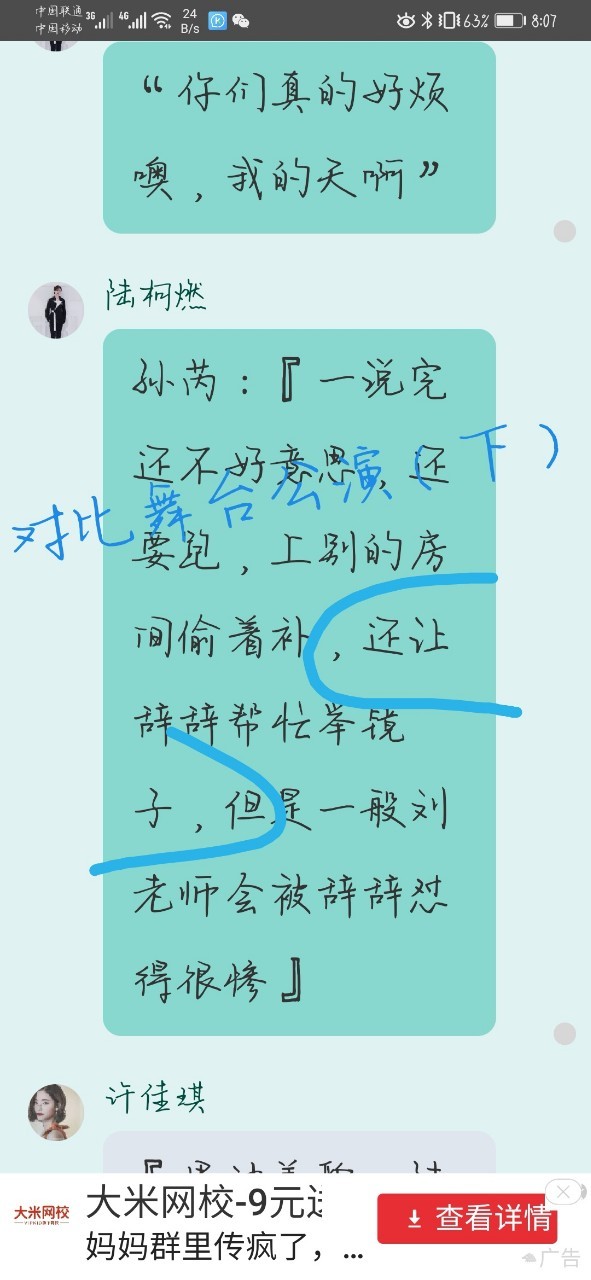 中国联通 3G 4G 24 63% 8:07
中国移动 B/s
“你们真的好烦
噢，我的天啊”
陆柯燃
孙芮：『一说完
还不好意思，还
对比舞台公演（下）
要跑，上别的房
间偷着补，还让
辞辞帮忙举镜
子，但是一般刘
老师会被辞辞怼
得很惨』
许佳琪
大米网校
大米网校-9元
妈妈群里传疯了，...
查看详情
广告